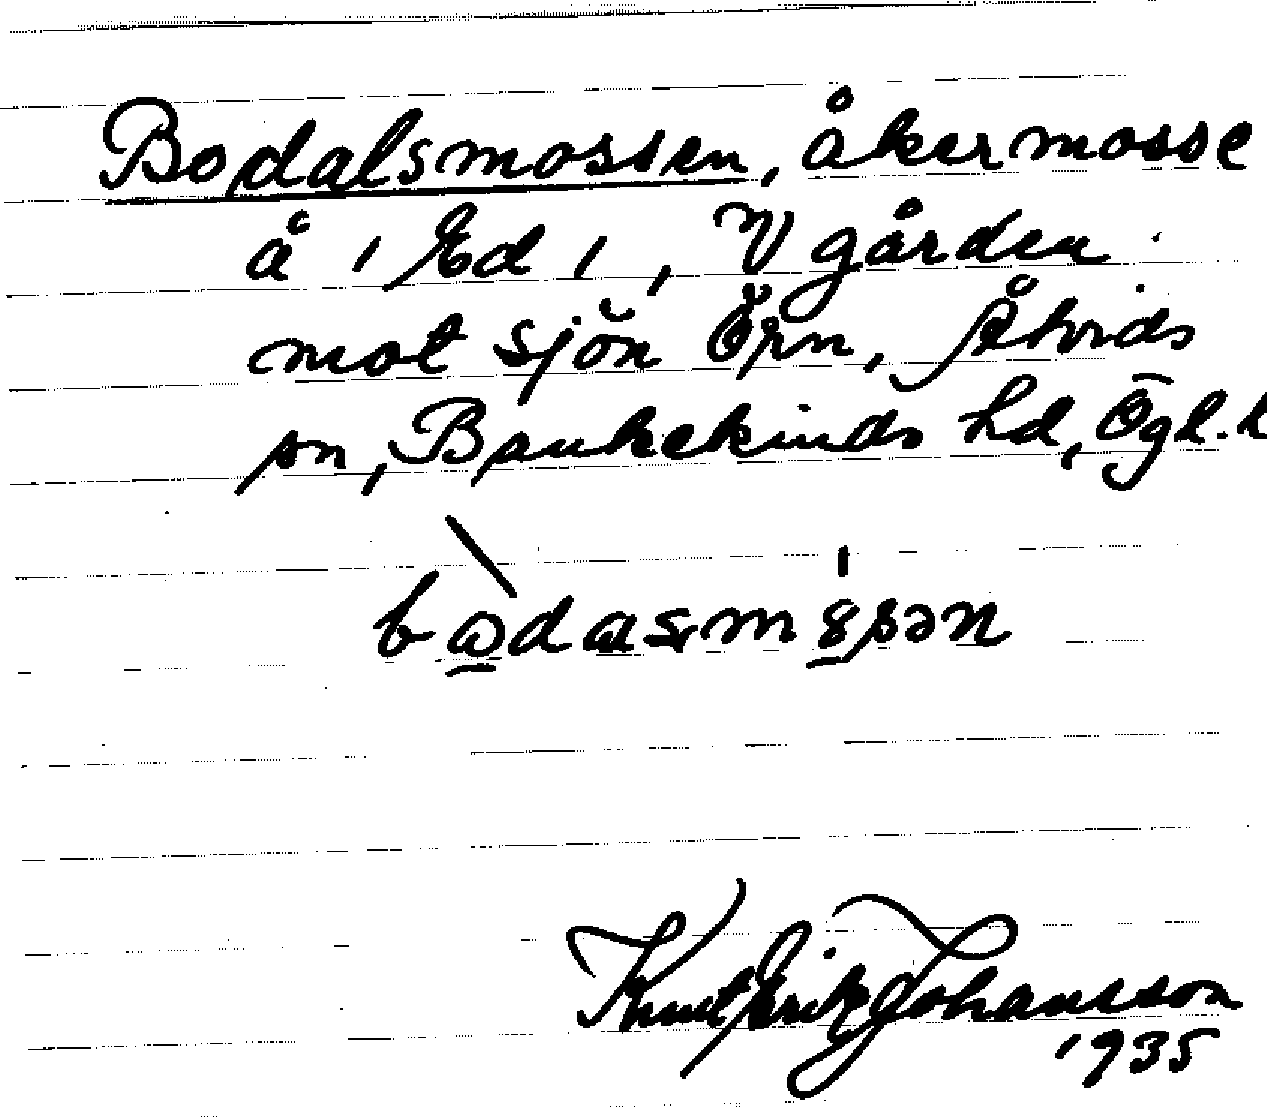 Bodalsmossen, åkermosse
å 1 Ed 1, V gården
mot sjön Örn, Åtvids
sn, Bankekinds hd, Ögl. l
bωdasmo̱sən
Knut Fritz Johansson
1935